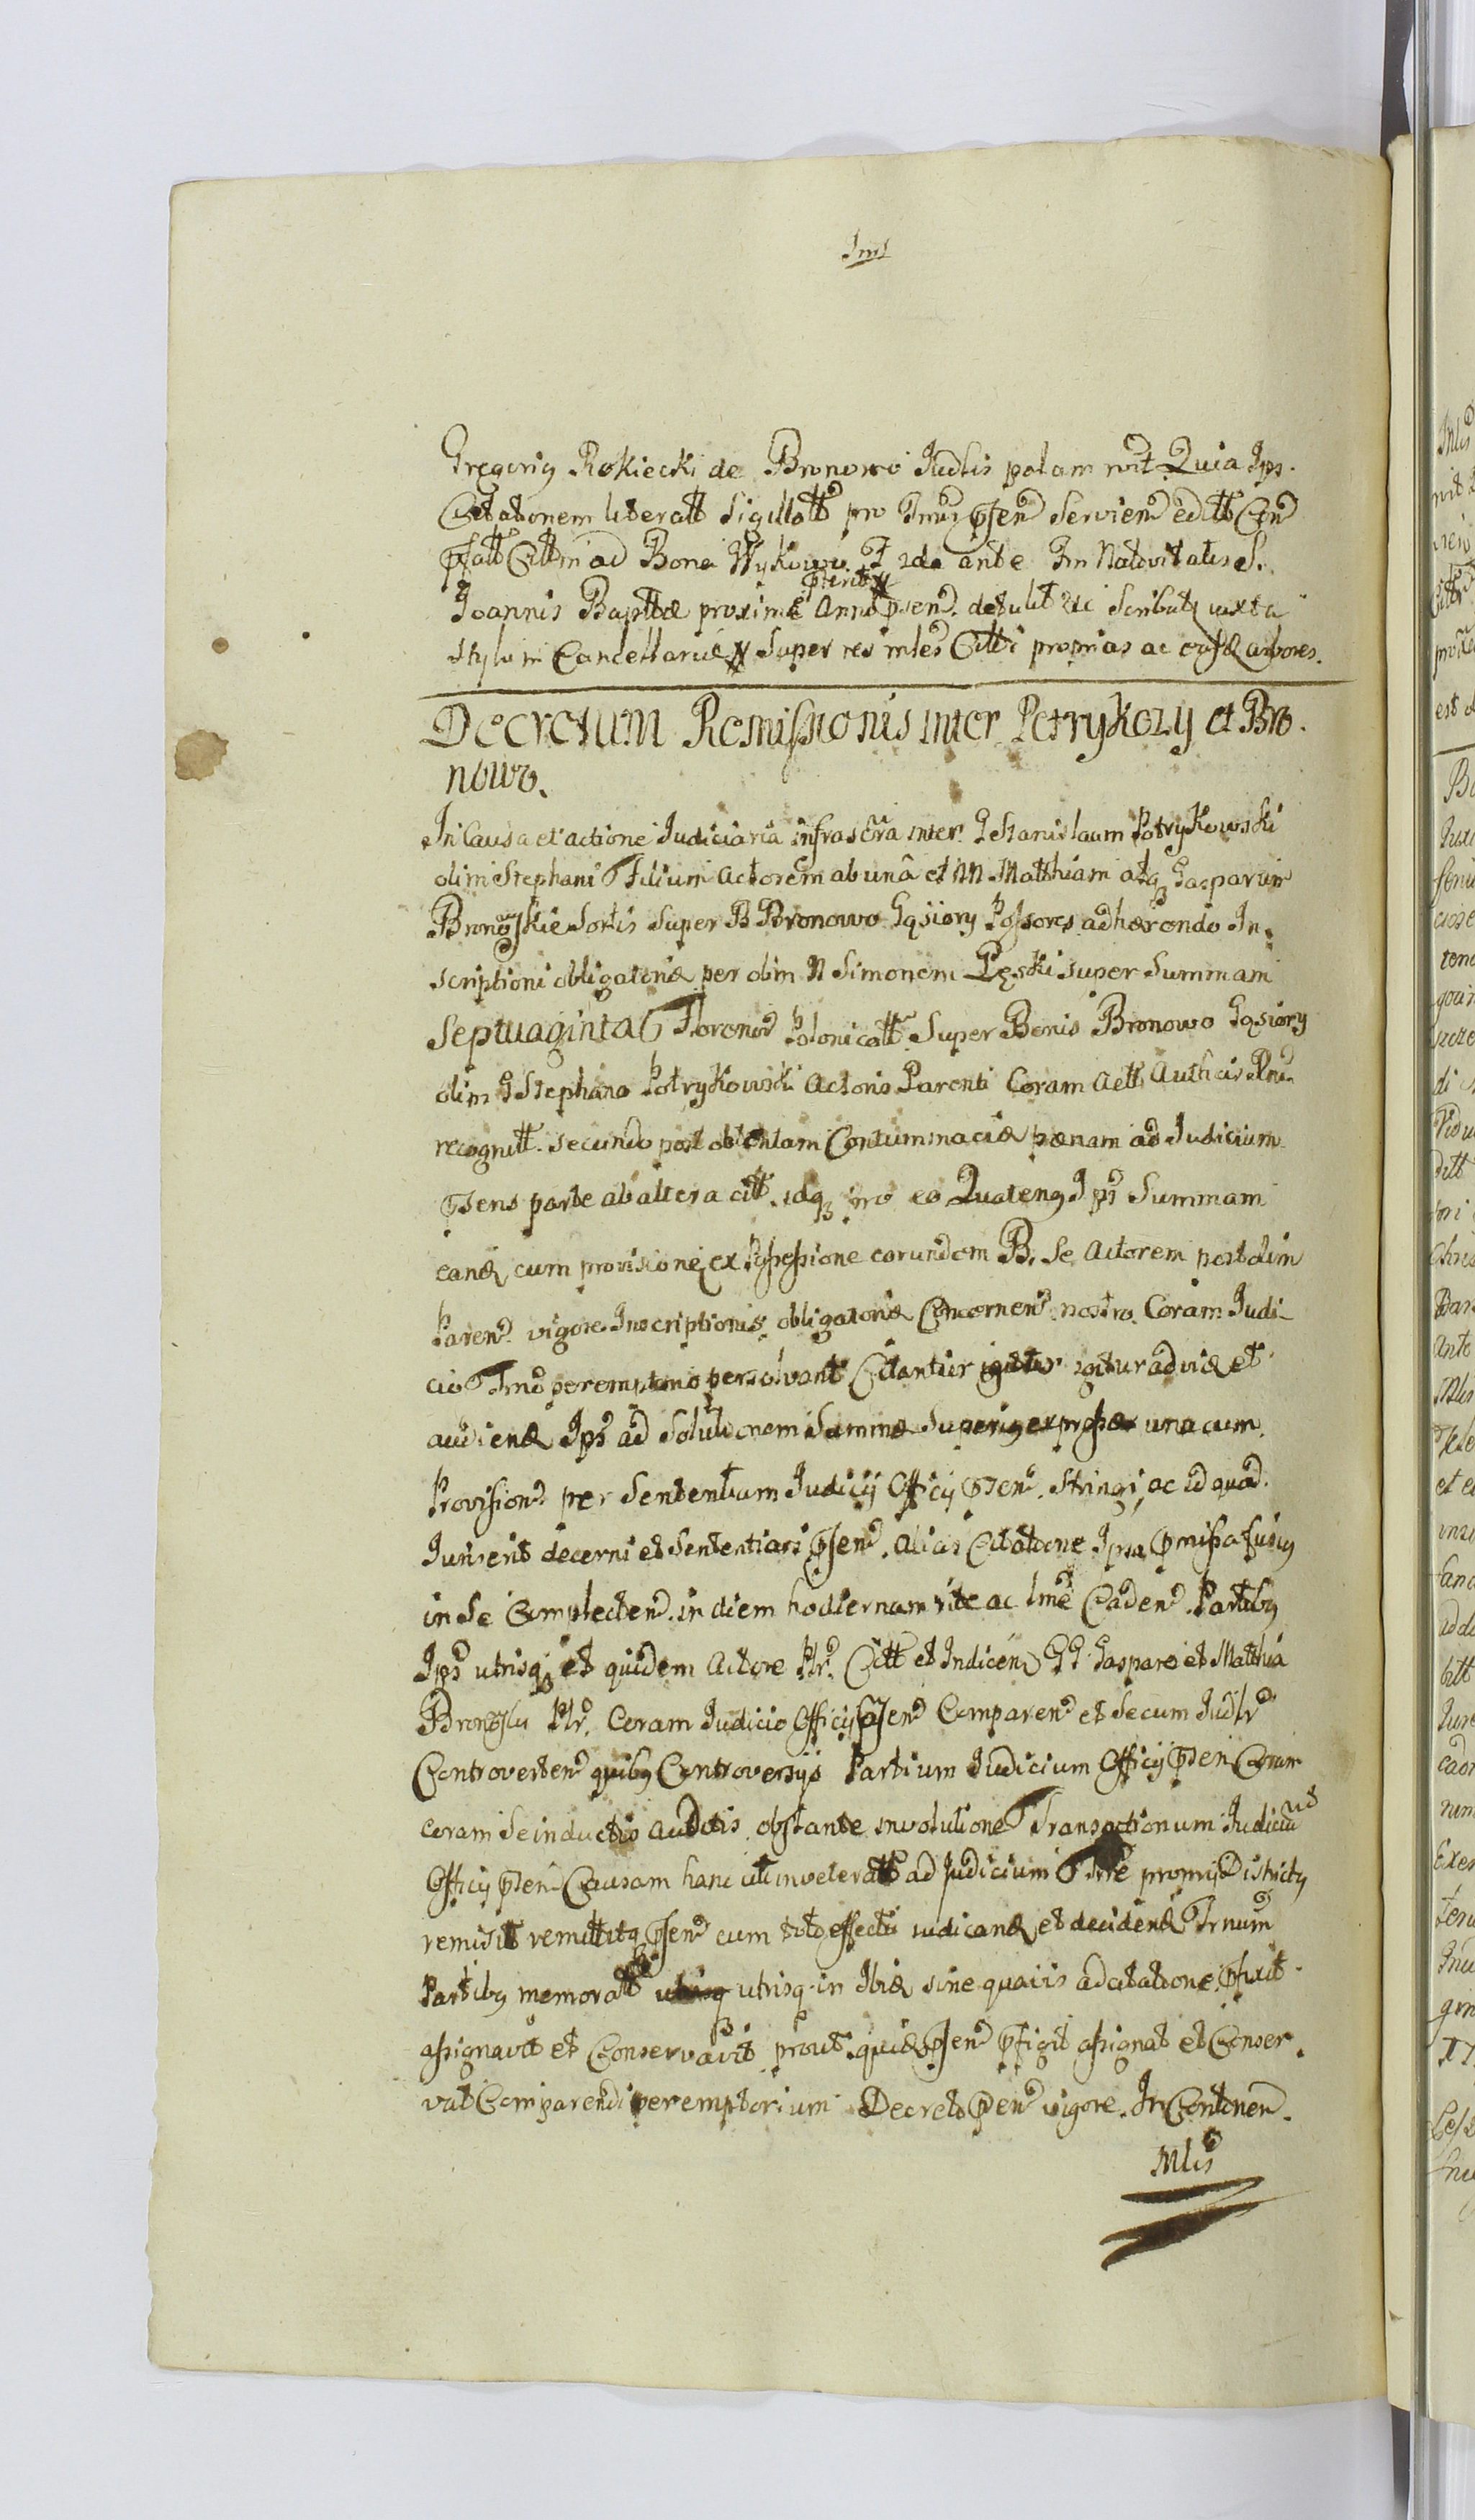 Gregorig Rokiecki de Bronowo Judlis palam rnit Quia Ips.
Citationem literatt Sigillatt pro Tmis psen Servien editt Cen
pfatt Cittm ad Bona Wykowo F 2da ante Fm Nativitatis S.
Joannis Baptæ proxime Anno psen. detulit etc Scribatq iuxta
pterit
Stylum Cancellariæ Super res mles Citti promias ac cæsæ arbores.
Decretum Remissionis inter Petrykozy et Bro.
nowo.
In Causa et actione Judiciaria infrascra inter G Stanislaum Potrykowski
olim Stephani Filium Actorem ab una et NN Matthiam atq Gasparum
Bronoskie Sortis Super B Bronowo Gąsiory Possores adhærendo In.
scriptioni obligatoriæ per olim N Simonem Pęski super Summam
Septuaginta Florenor Polonicatt Super Bonis Bronowo Gąsiory
olim G Stephano Potrykowski Actoris Parenti Coram Actt Authcis
recognitt. secundo post obtentam Contummaciæ pænam ad Judicium
psens parte ab altera citt. idq pro eo Quateng Ips Summam
eand cum provisione ex Possessione eorundem B. Se Actorem post olim
Paren vigore Inscriptionis obligatoriæ Concernen nostro Coram Judi-
cio Tmo peremptorio persolvant Citantur igitur ad vid et
audiend Ips ad Solutionem Summæ Superig expressæ una cum
Provision per Sententiam Judicij Officij psen. Stringi, ac id quod
Juris erit decerni et Sententiari psen. alias Citatione Ipsa pmissa fusig
in Se Complecten. in diem hodiernam rite ac lme Caden. Partibg
Ips utrisq et quidem Actore Plr. Citt et Indicen GG Gaspare et Matthia
Bronoski Plr. Coram Judicio Officij psen Comparen et Secum Judlr
Controverten quibg Controversijs Partium Judicium Officij psen Coram
coram Se inductis auditis obstante involutione Transactionum Judiciū
Officij psen Causam hanc uti inveteratt ad Judicium Trre proprij Districtg
remisit remittitq psen cum toto effectu iudicand et decidend Trnum
Partibg memoratt utrisq in Ibid sine quavis adcitatione pfixit
assignavit et Conservavit prout quid psen pfigit assignat et Conser.
vat Comparendi peremptorium Decreto psen vigore. In Contnen.
Mlis